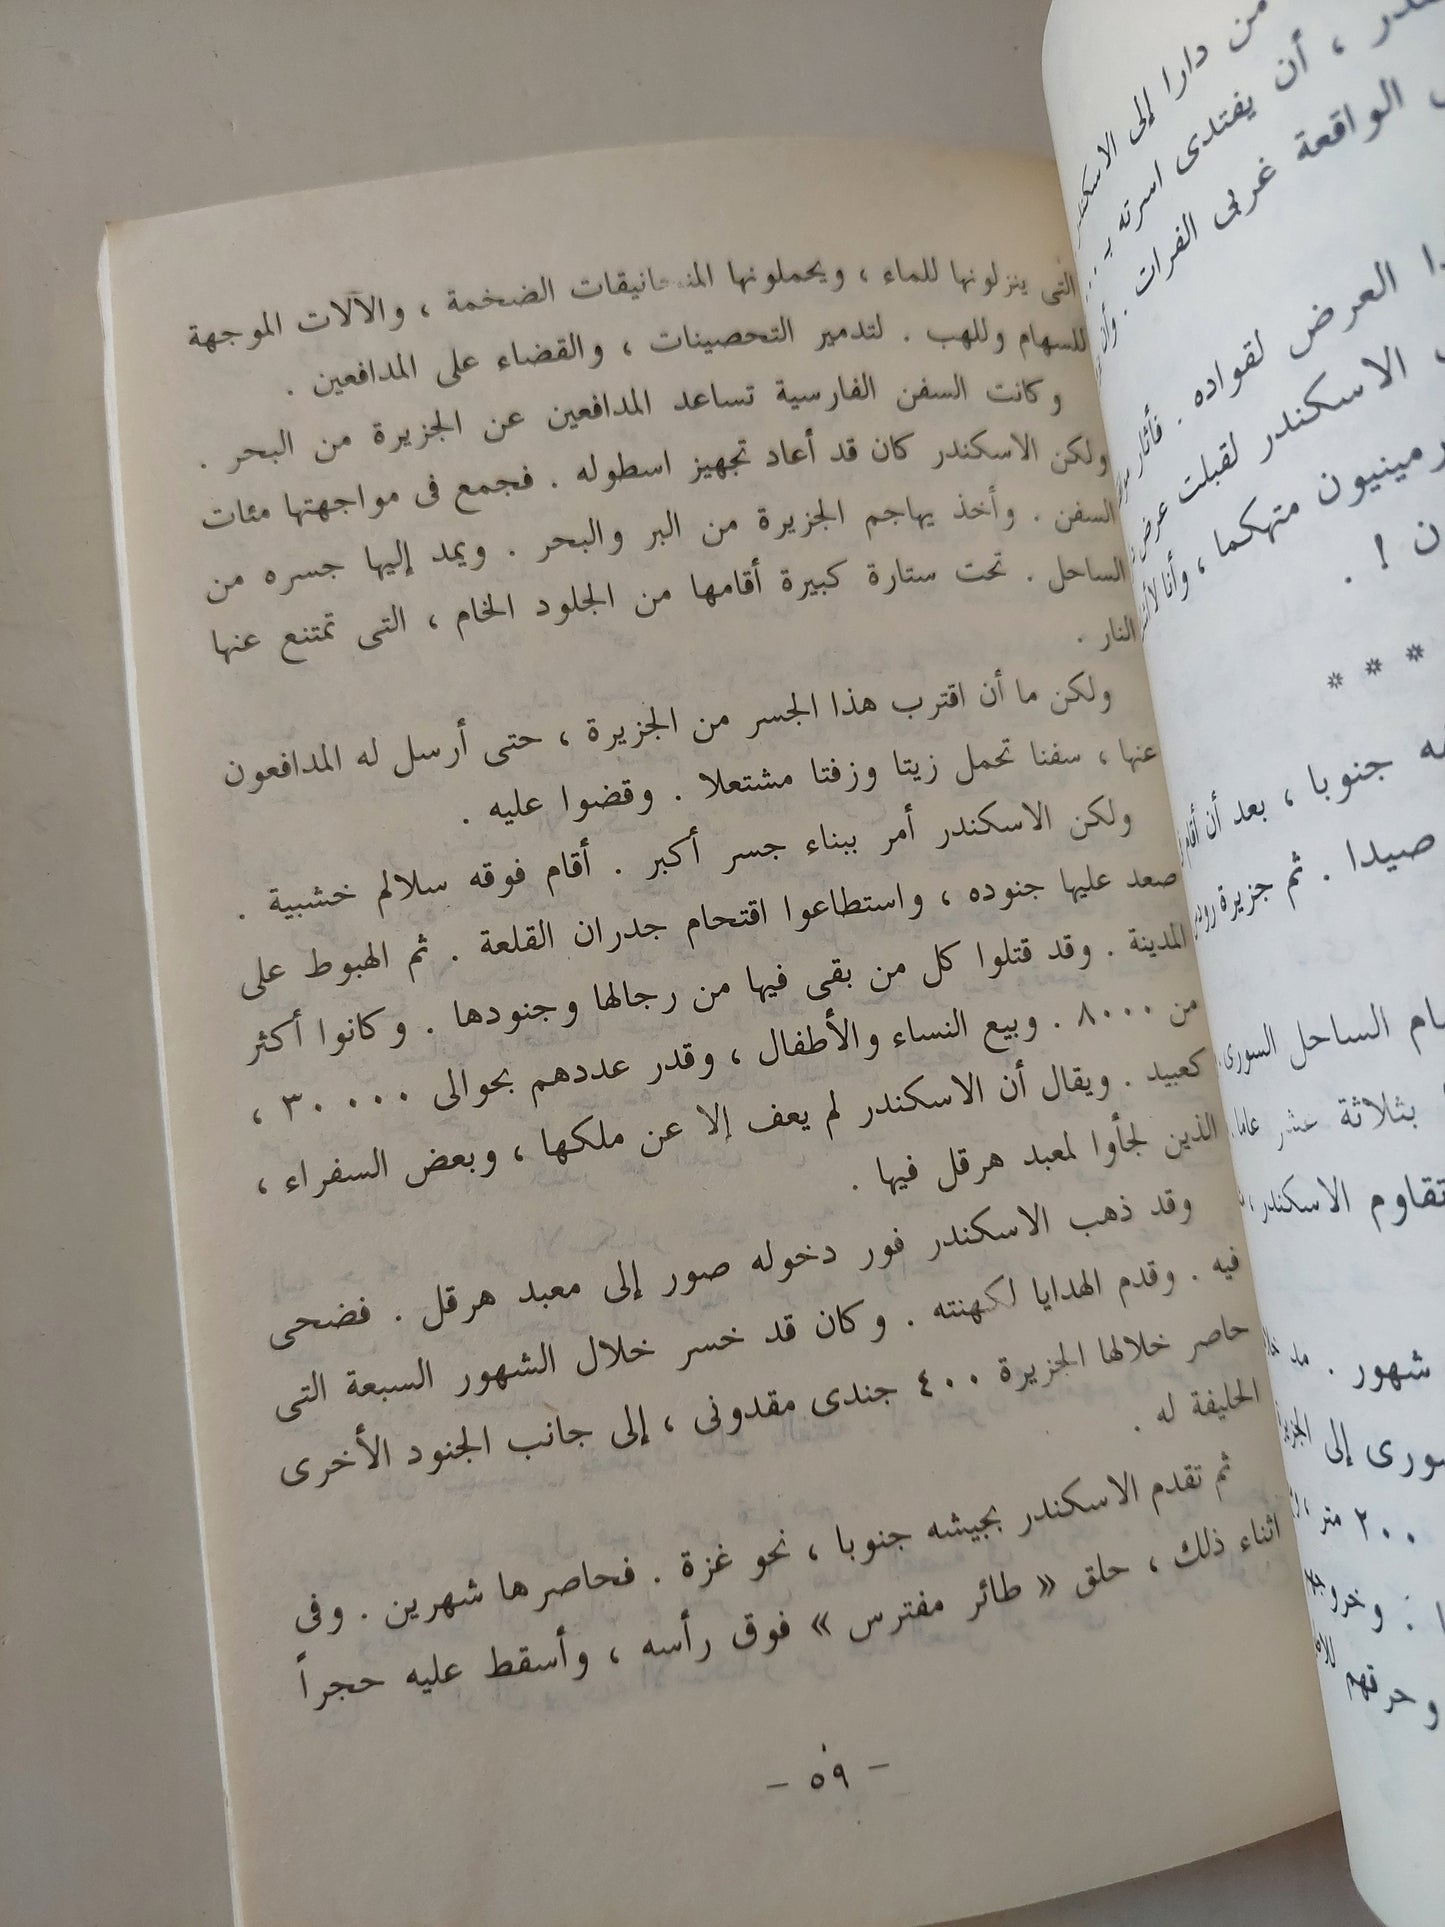 من دارا إلى
، أن يفتدى اسرته
الواقعة غربى الفرات . وأن
العرض لقواده . فأثار
الاسكندر لقبلت عرض
متهكما ، وأنا
ن ! .
* * *
جنوبا ، بعد أن أقام
صيدا . ثم جزيرة
الساحل السورى
بثلاثة عشر عاما
تقاوم الاسكندر ،
شهور .
إلى
٢٠٠ متر ،
وحرقهم
التى ينزلونها للماء ، ويحملونها المنجانيقات الضخمة ، والآلات الموجهة
للسهام وللهب . لتدمير التحصينات ، والقضاء على المدافعين .
وكانت السفن الفارسية تساعد المدافعين عن الجزيرة من البحر .
ولكن الاسكندر كان قد أعاد تجهيز اسطوله . فجمع فى مواجهتها مئات
السفن . وأخذ يهاجم الجزيرة من البر والبحر . ويمد إليها جسره من
الساحل . تحت ستارة كبيرة أقامها من الجلود الخام ، التى تمتنع عنها
النار .
ولكن ما أن اقترب هذا الجسر من الجزيرة ، حتى أرسل له المدافعون
عنها ، سفنا تحمل زيتا وزفتا مشتعلا . وقضوا عليه .
ولكن الاسكندر أمر ببناء جسر أكبر . أقام فوقه سلالم خشبية .
صعد عليها جنوده ، واستطاعوا اقتحام جدران القلعة . ثم الهبوط على
المدينة . وقد قتلوا كل من بقى فيها من رجالها وجنودها . وكانوا أكثر
من ٨٠٠٠ . وبيع النساء والأطفال ، وقدر عددهم بحوالى ٣٠٠٠٠ ،
كعبيد . ويقال أن الاسكندر لم يعف إلا عن ملكها ، وبعض السفراء ،
الذين لجأوا لمعبد هرقل فيها .
وقد ذهب الاسكندر فور دخوله صور إلى معبد هرقل . فضحى
فيه . وقدم الهدايا لكهنته . وكان قد خسر خلال الشهور السبعة التى
حاصر خلالها الجزيرة ٤٠٠ جندى مقدونى ، إلى جانب الجنود الأخرى
الحليفة له .
ثم تقدم الاسكندر بجيشه جنوبا ، نحو غزة . فحاصرها شهرين . وفى
اثناء ذلك ، حلق « طائر مفترس » فوق رأسه ، وأسقط عليه حجراً
- ٥٩ -